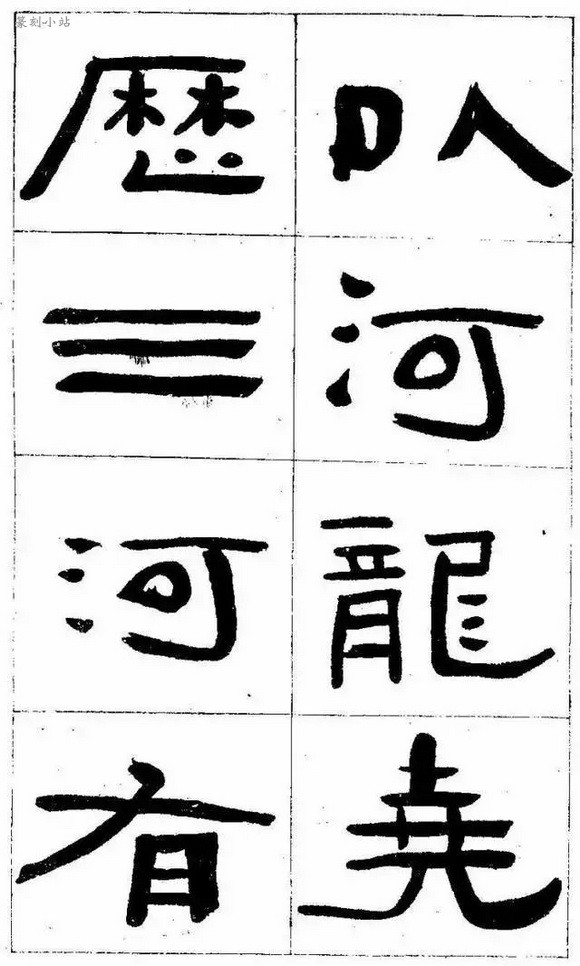 篆刻小站
以河龍堯
歷三河有